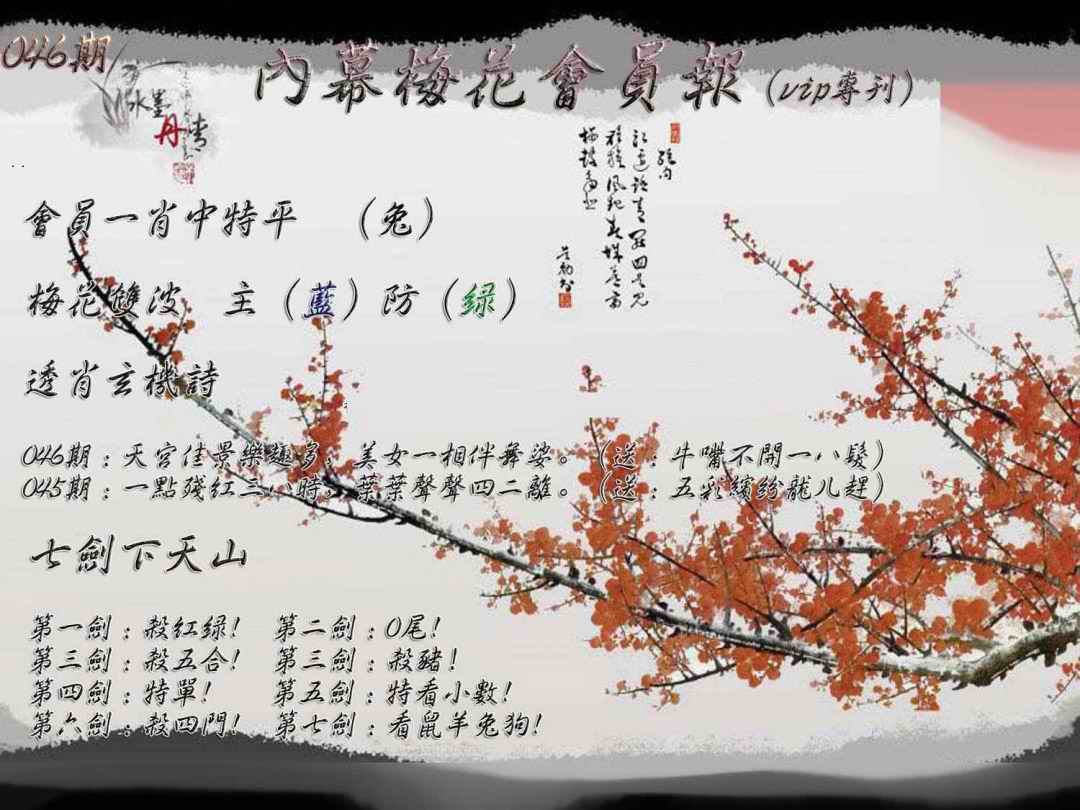 046期
內幕梅花會員報(vip專刊)
水墨
丹青
會員一肖中特平 (兔)
梅花雙波 主(藍)防(绿)
透肖玄機詩
046期:天宮佳景樂趣多,美女一相伴舞婆。(送:牛嘴不開一八髮)
045期:一點殘紅三八時,葉葉聲聲四二離。(送:五彩繽紛龍儿趕)
七劍下天山
第一劍:殺红绿! 第二劍:0尾!
第三劍:殺五合! 第三劍:殺豬!
第四劍:特單! 第五劍:特看小數!
第六劍:殺四門! 第七劍:看鼠羊兔狗!